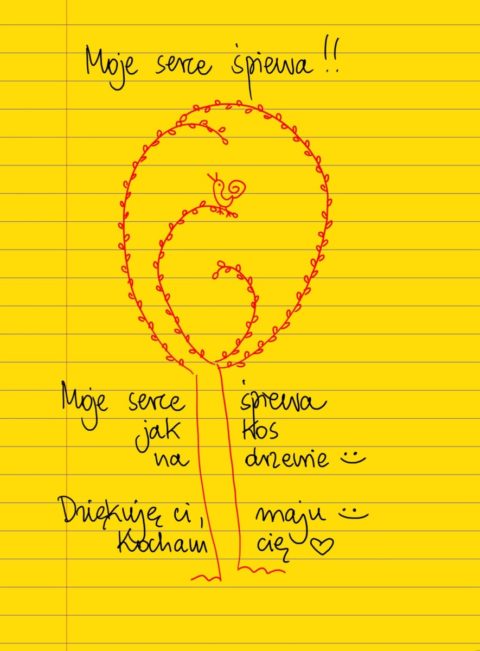 Moje serce śpiewa!!
Moje serce śpiewa
jak kos
na drzewie :)
Dziękuję ci, maju :)
Kocham cię ♡